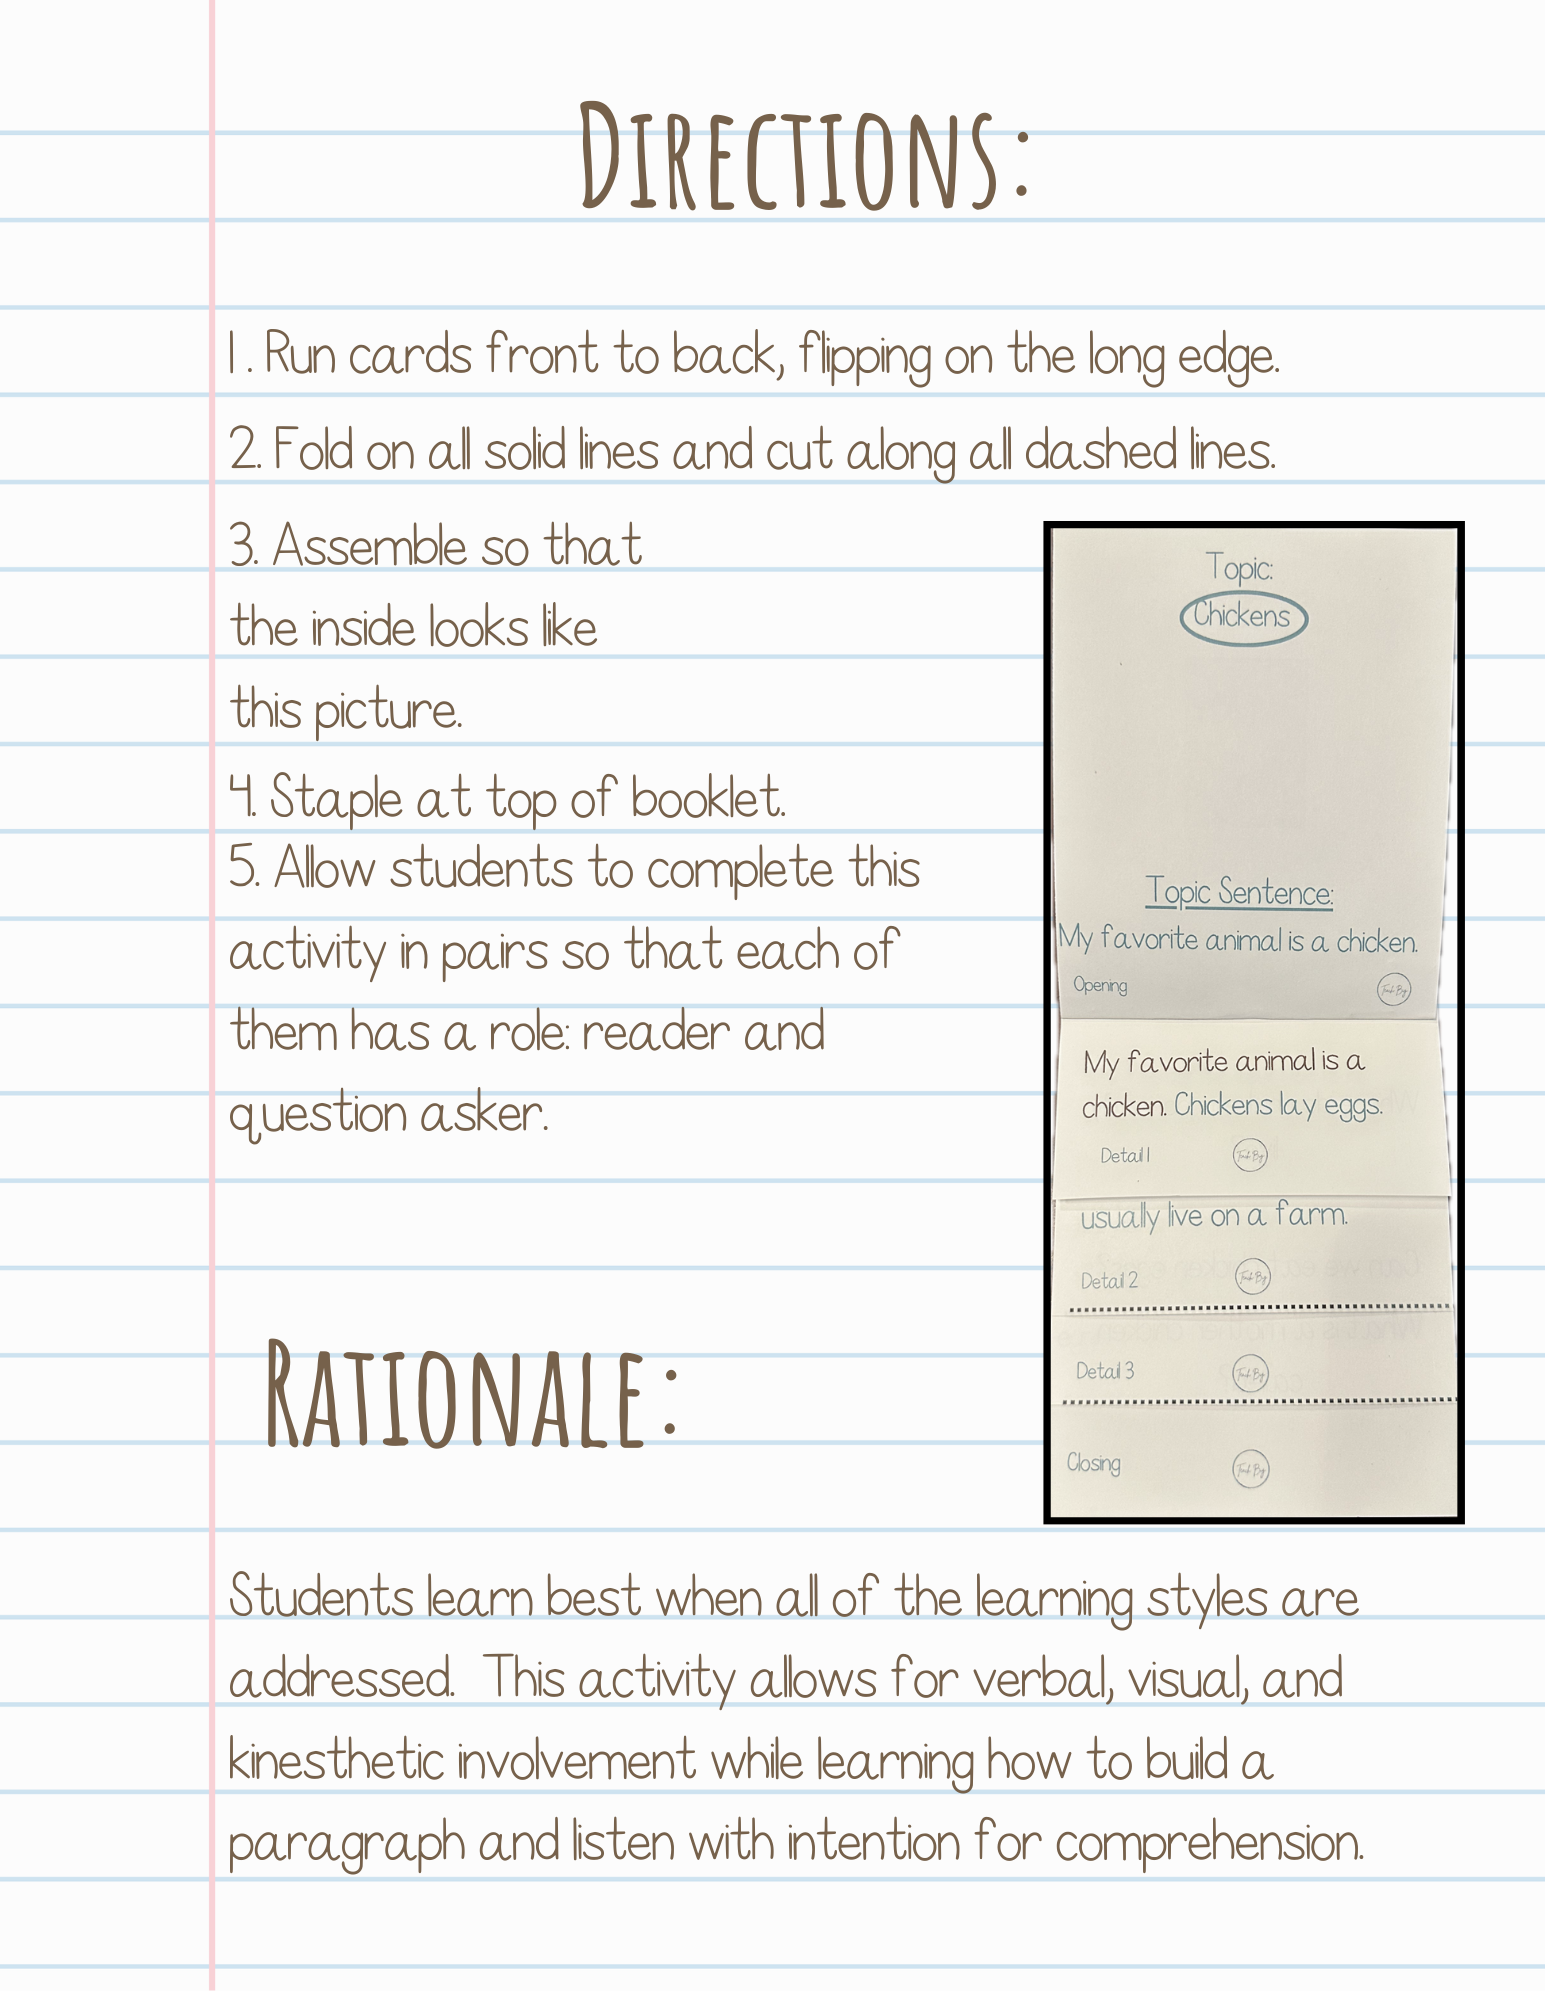 Directions:
1. Run cards front to back, flipping on the long edge.
2. Fold on all solid lines and cut along all dashed lines.
3. Assemble so that
the inside looks like
this picture.
4. Staple at top of booklet.
5. Allow students to complete this
activity in pairs so that each of
them has a role: reader and
question asker.
Topic:
Chickens
Topic Sentence:
My favorite animal is a chicken.
Opening
My favorite animal is a
chicken. Chickens lay eggs.
Detail 1
usually live on a farm.
Detail 2
Detail 3
Closing
Rationale:
Students learn best when all of the learning styles are
addressed. This activity allows for verbal, visual, and
kinesthetic involvement while learning how to build a
paragraph and listen with intention for comprehension.